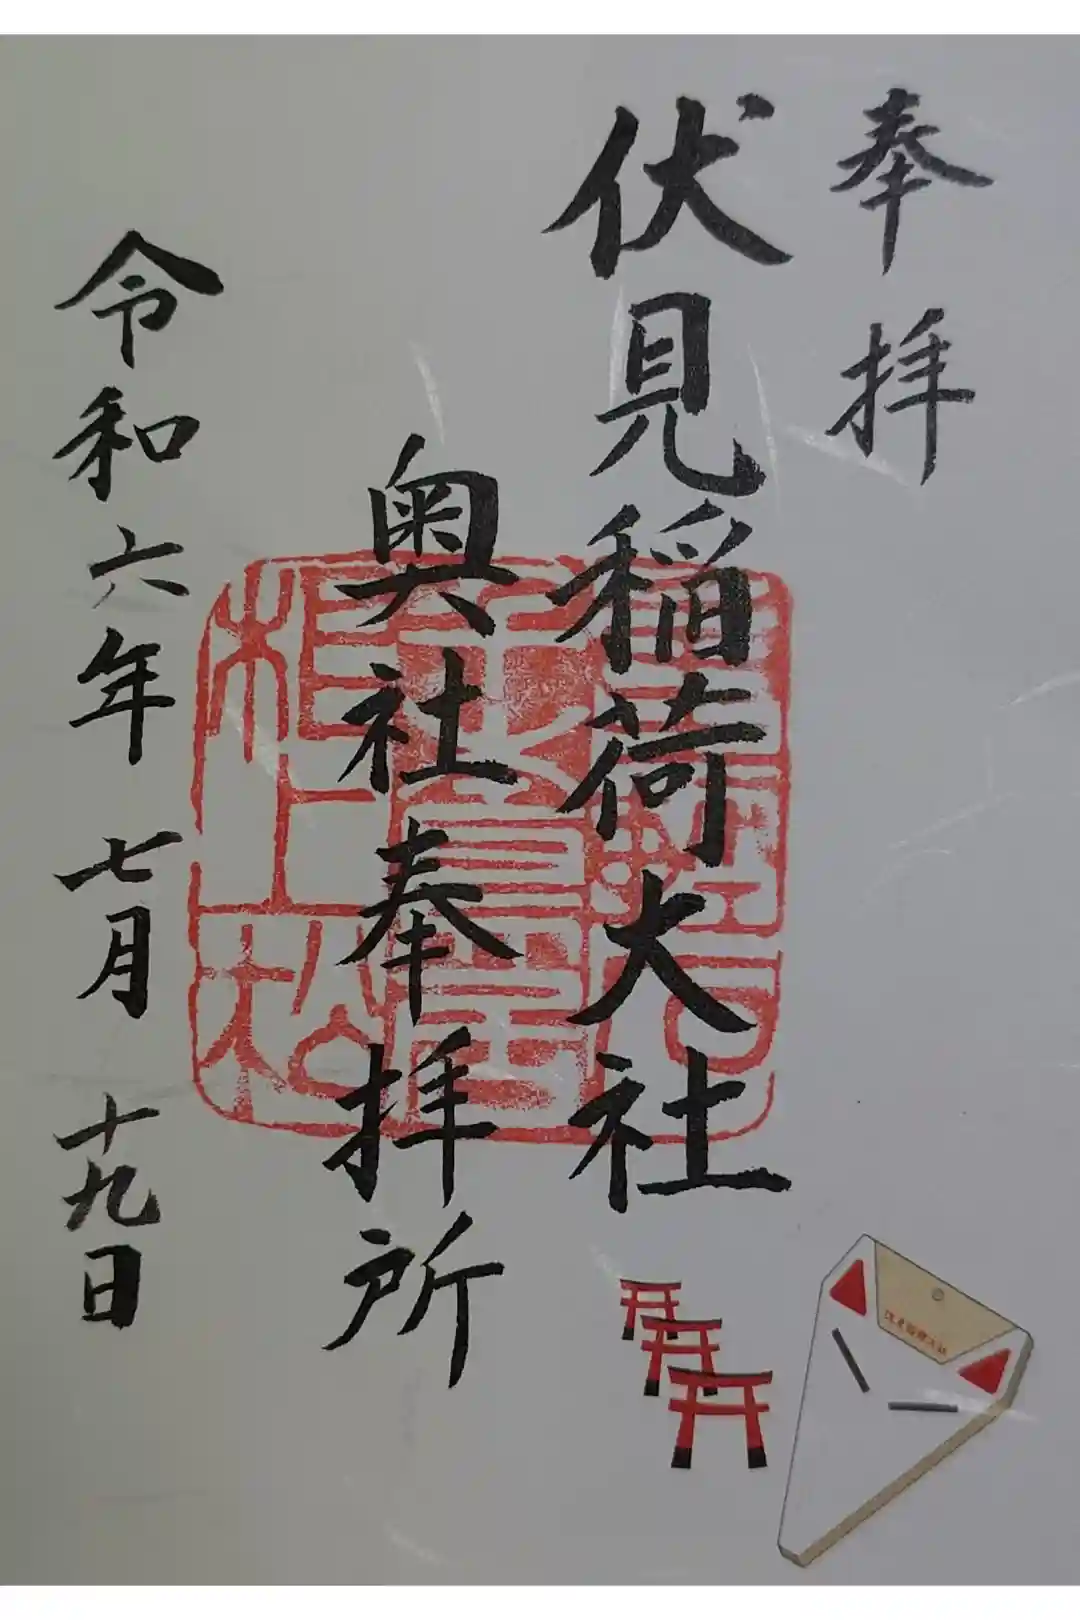 奉拝
伏見稲荷大社
奥社奉拝所
令和六年七月十九日
伏見稲荷大社